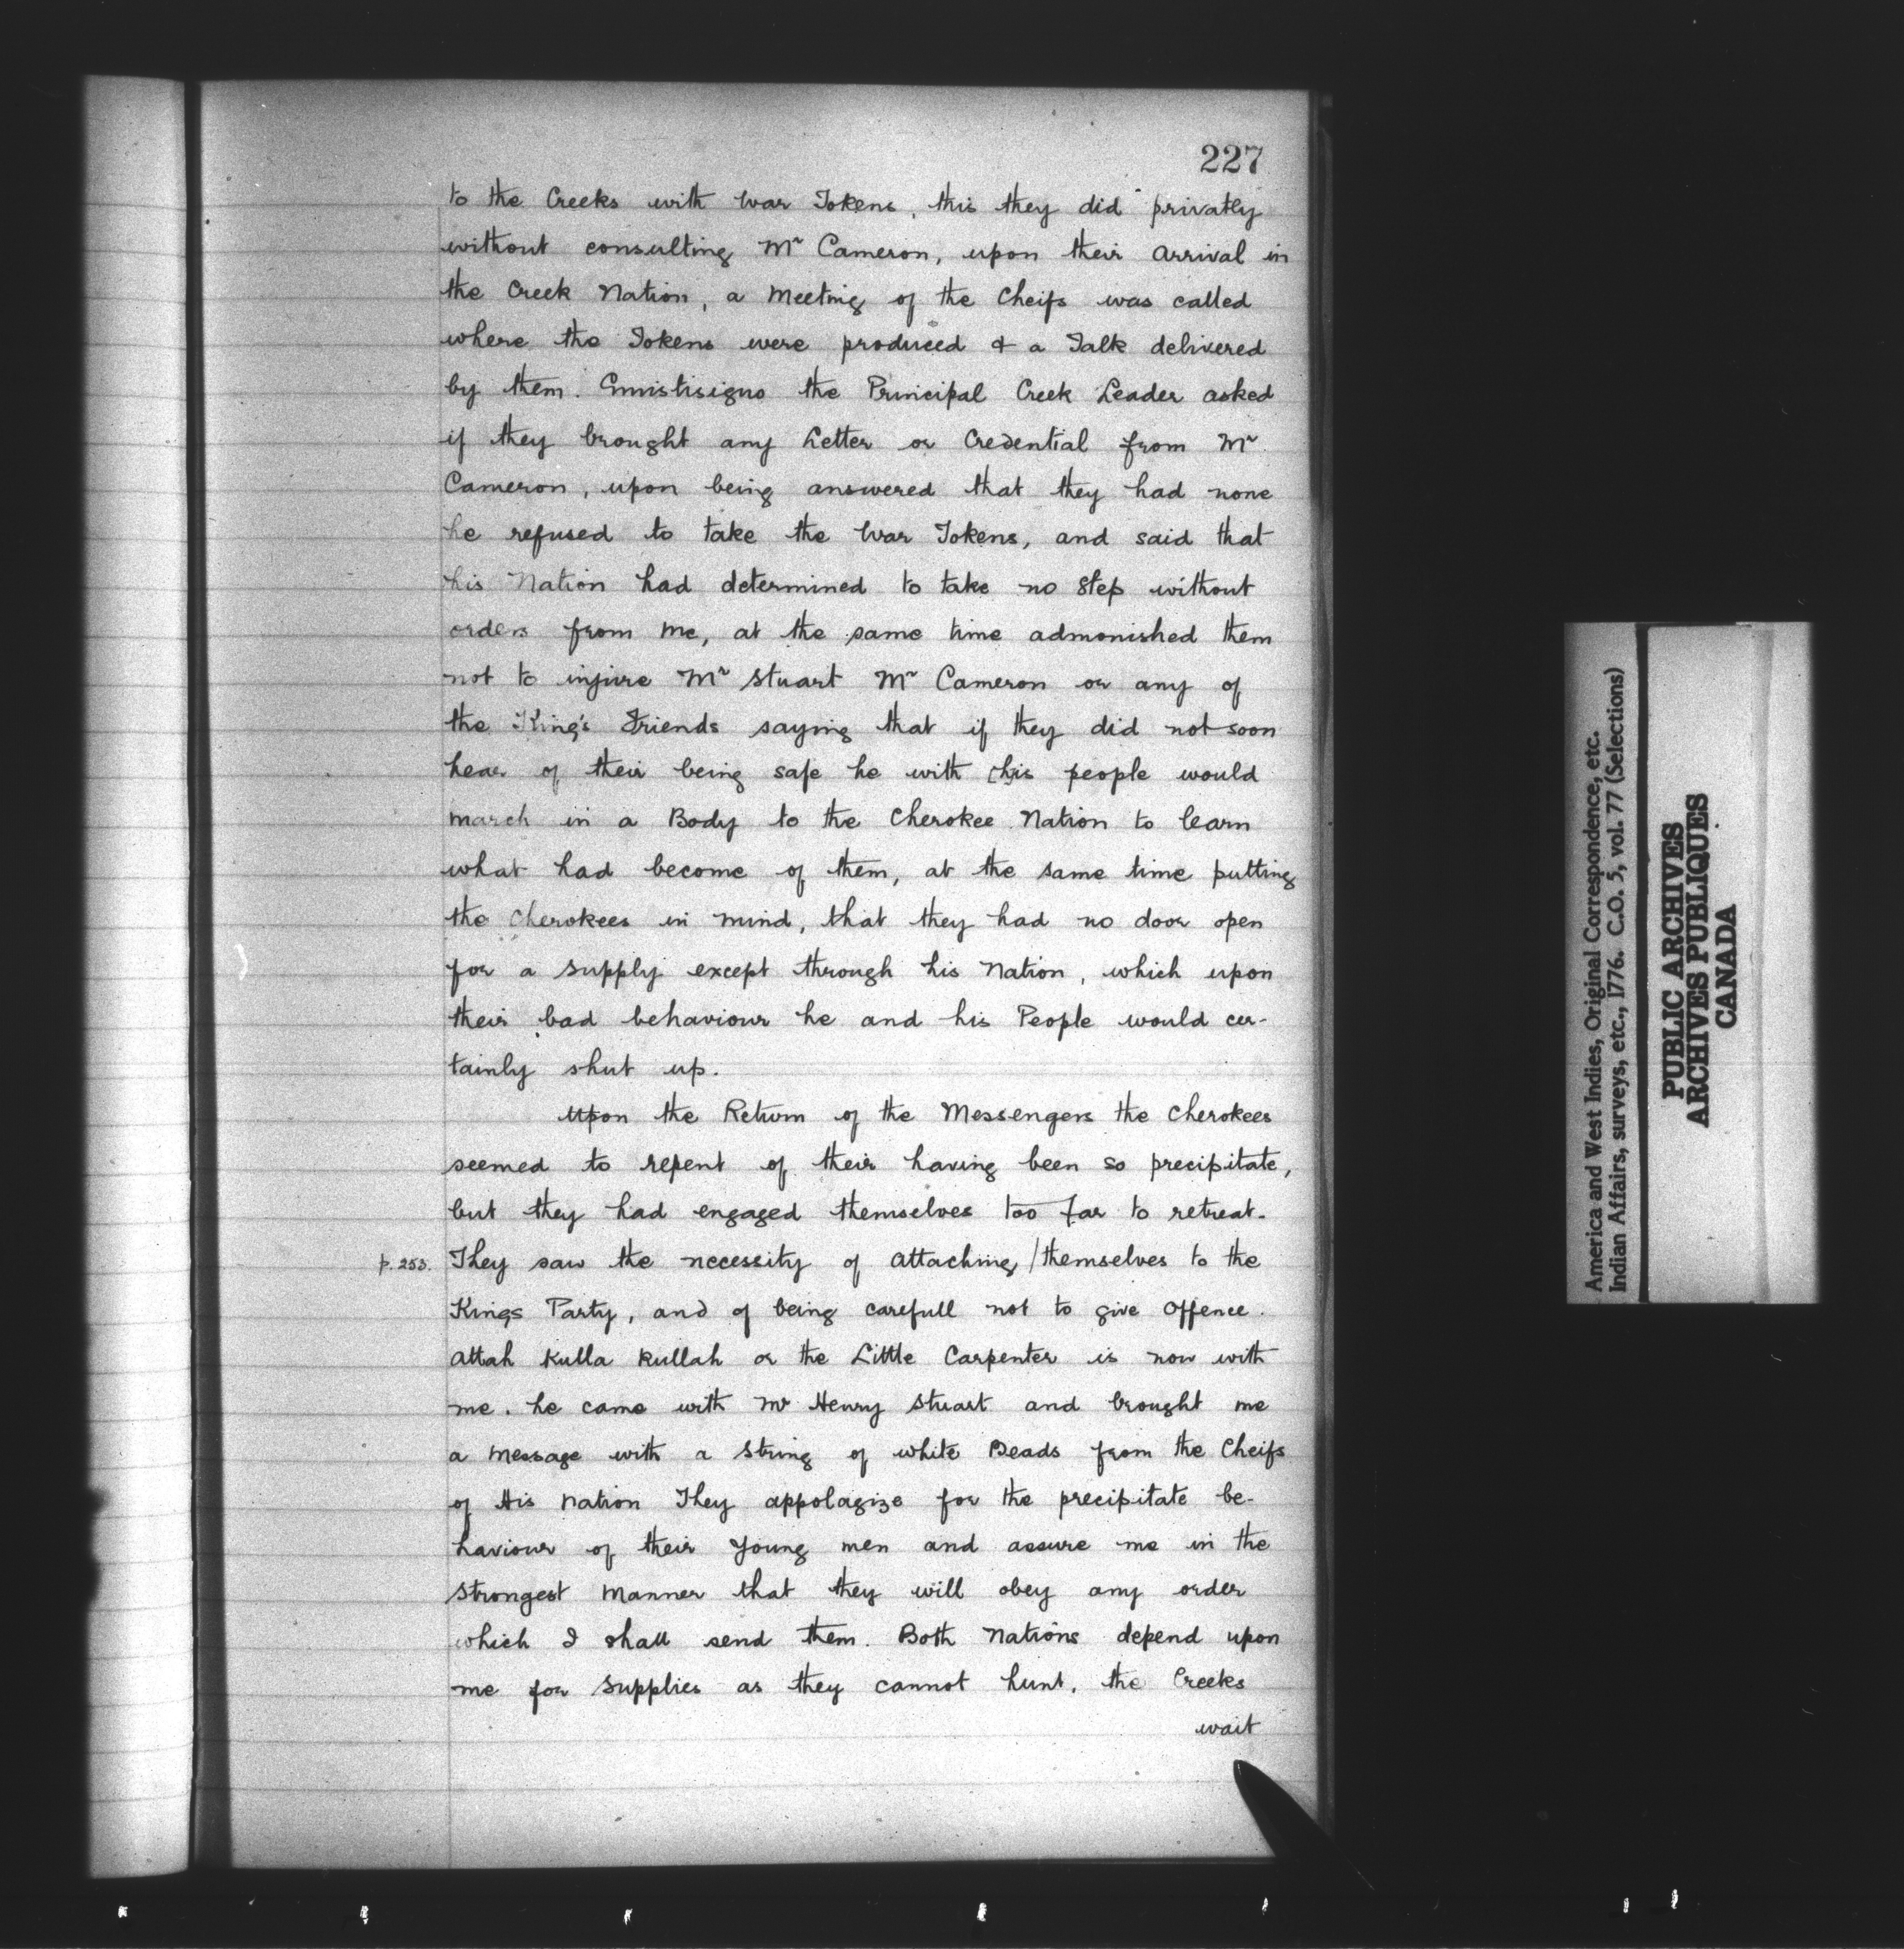 227
to the Creeks with War Tokens, this they did privatly
without consulting Mr Cameron, upon their Arrival in
the Creek Nation, a Meeting of the Cheifs was called
where the Tokens were produced & a Talk delivered
by them. Emistisiguo the Principal Creek Leader asked
if they brought any Letter or Credential from Mr
Cameron, upon being answered that they had none
he refused to take the War Tokens, and said that
his Nation had determined to take no Step without
orders from me, at the same time admonished them
not to injure Mr Stuart Mr Cameron or any of
the King's Friends saying that if they did not soon
hear of their being safe he with his people would
march in a Body to the Cherokee Nation to learn
what had become of them, at the same time putting
the Cherokees in mind, that they had no door open
for a supply except through his Nation, which upon
their bad behaviour he and his People would cer-
tainly shut up.
Upon the Return of the Messengers the Cherokees
seemed to repent of their having been so precipitate,
but they had engaged themselves too far to retreat.
p. 253. They saw the necessity of Attaching / themselves to the
Kings Party, and of being carefull not to give Offence.
Attah Kulla Kullah or the Little Carpenter is now with
me. he came with Mr Henry Stuart and brought me
a Message with a String of white Beads from the Cheifs
of His Nation They appolagize for the precipitate be-
haviour of their Young men and assure me in the
Strongest Manner that they will obey any order
which I shall send them. Both Nations depend upon
me for Supplies as they cannot hunt, the Creeks
wait
America and West Indies, Original Correspondence, etc.
Indian Affairs, surveys, etc., 1776. C.O. 5, vol. 77 (Selections)
PUBLIC ARCHIVES
ARCHIVES PUBLIQUES
CANADA